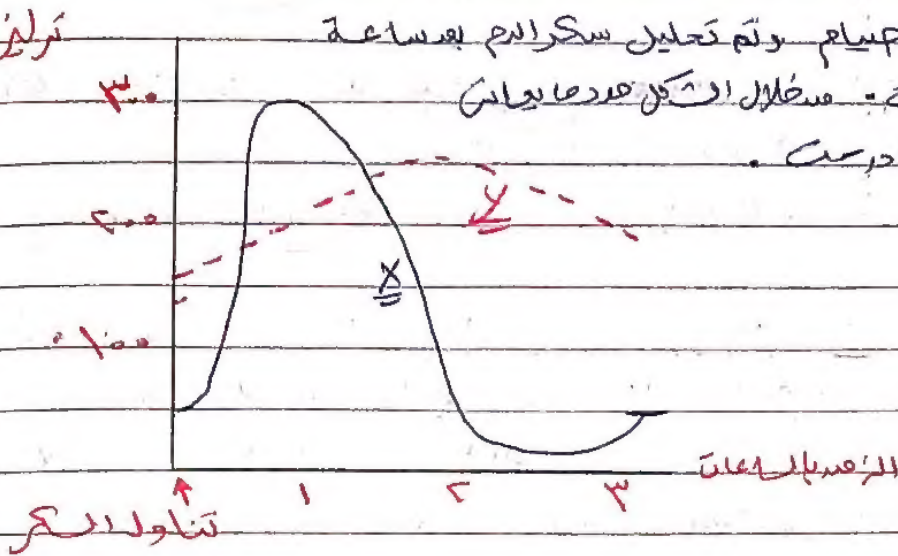 صيام وتم تحليل سكر الدم بعد ساعة
من خلال الشكل حدد ما يعانى
درست .
٣٠٠
٢٠٠
١٠٠
Y
X
الزمن بالساعات
١ ٢ ٣
تناول السكر